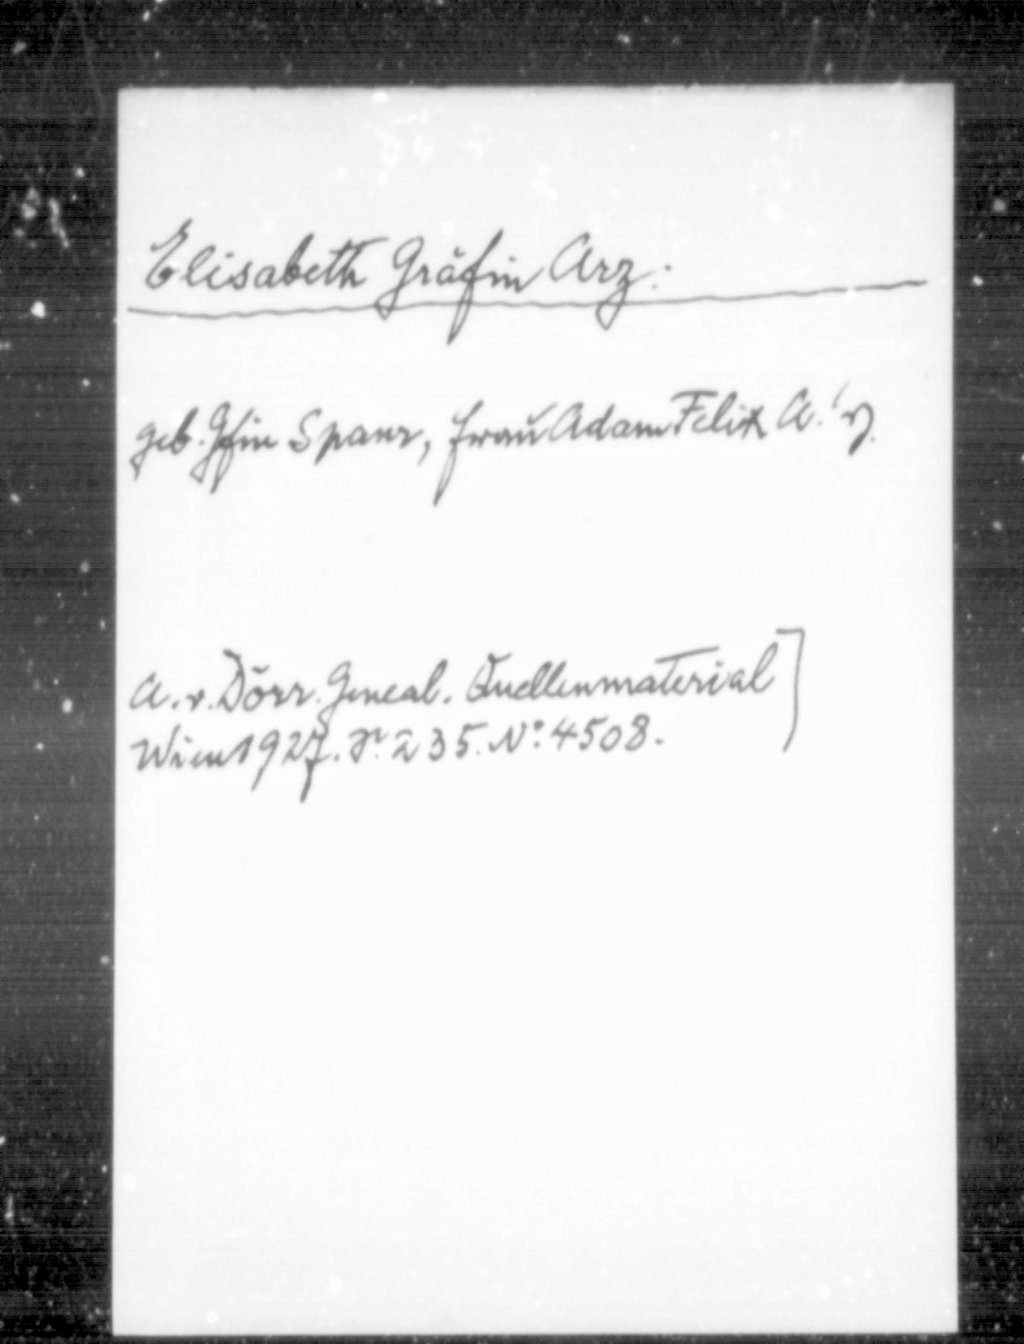 Elisabeth Gräfin Arz.
geb. Gfin Spaur, Frau Adam Felix A.'s
A. v. Dörr. Geneal. Quellenmaterial
Wien 1927. S. 235. No. 4508.